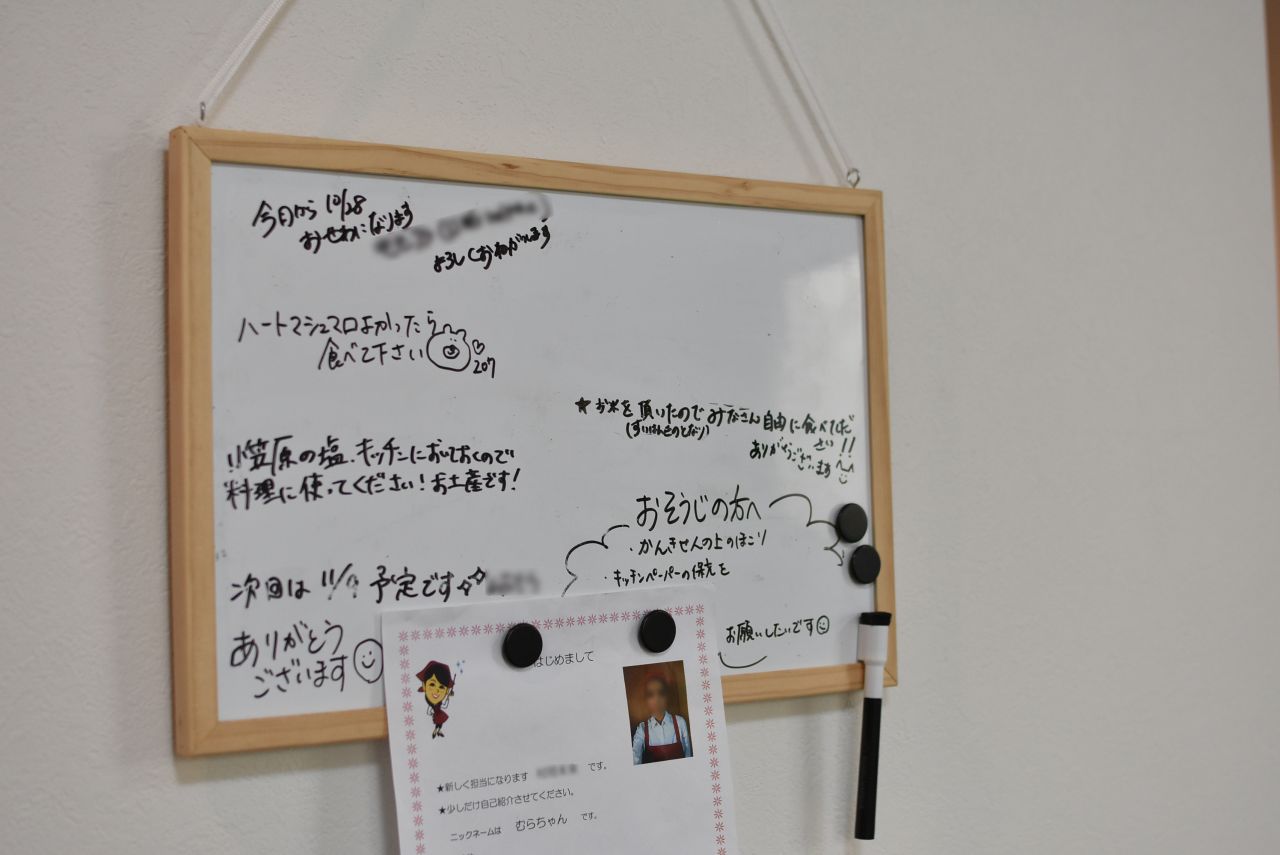 今日から 10/28
おせわになります
よろしくおねがいします
ハートマシュマロよかったら
食べて下さい
207
小笠原の塩、キッチンにおいておくので
料理に使ってください!お土産です!
次回は 11/9 予定です
ありがとう
ございます
★お米を頂いたのでみなさん自由に食べてくだ
(すいはんきのとなり)
さい!!
ありがとうござ
います
おそうじの方へ
・かんきせんの上のほこり
・キッチンペーパーの保充を
お願いしたいです
はじめまして
★新しく担当になります
です。
★少しだけ自己紹介させてください。
ニックネームは むらちゃん です。